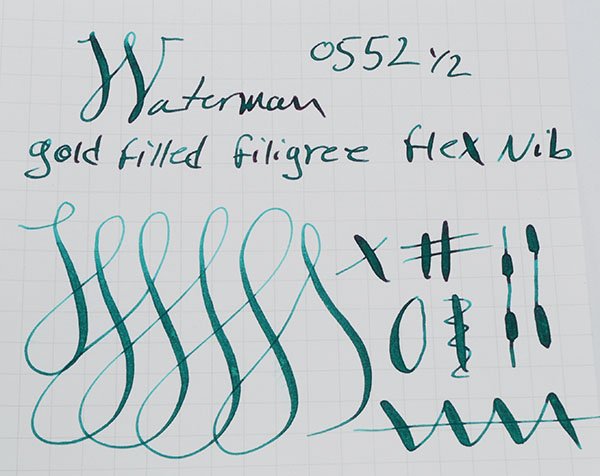 Waterman 0552 1/2
gold filled filigree flex Nib